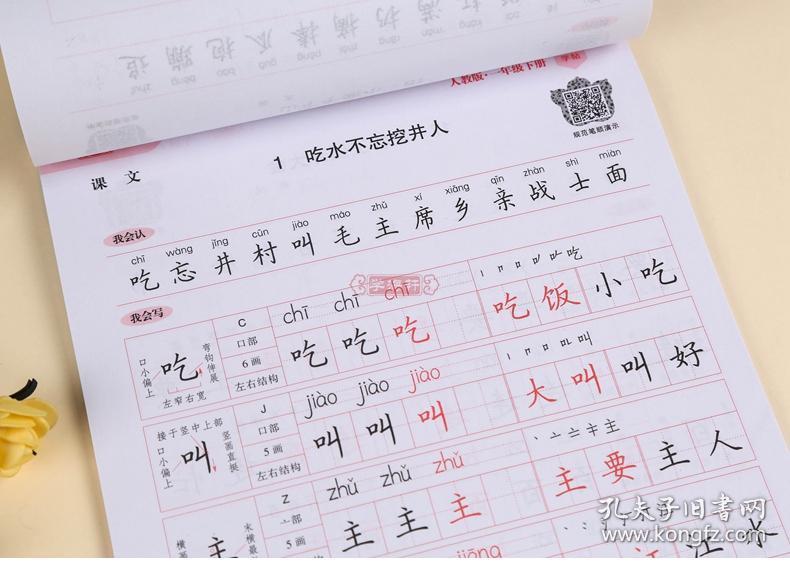 人教版·一年级下册
规范笔顺演示
课文 1 吃水不忘挖井人
我会认
chī wàng jǐng cūn jiào máo zhǔ xí xiāng qīn zhàn shì miàn
吃 忘 井 村 叫 毛 主 席 乡 亲 战 士 面
学练轩
我会写
C chī chī chī
口部
6画
左右结构
口小偏上
吃
弯钩伸展
左窄右宽
吃 吃 吃 吃 饭 小 吃
J jiào jiào jiào
口部
5画
左右结构
接于竖中上部
口小偏上
叫
竖画直挺
叫 叫 叫 大 叫 叫 好
Z zhǔ zhǔ zhǔ
亠部
5画
主
主 主 主 主 要 主 人
jiōng
江 水
孔夫子旧书网
www.kongfz.com